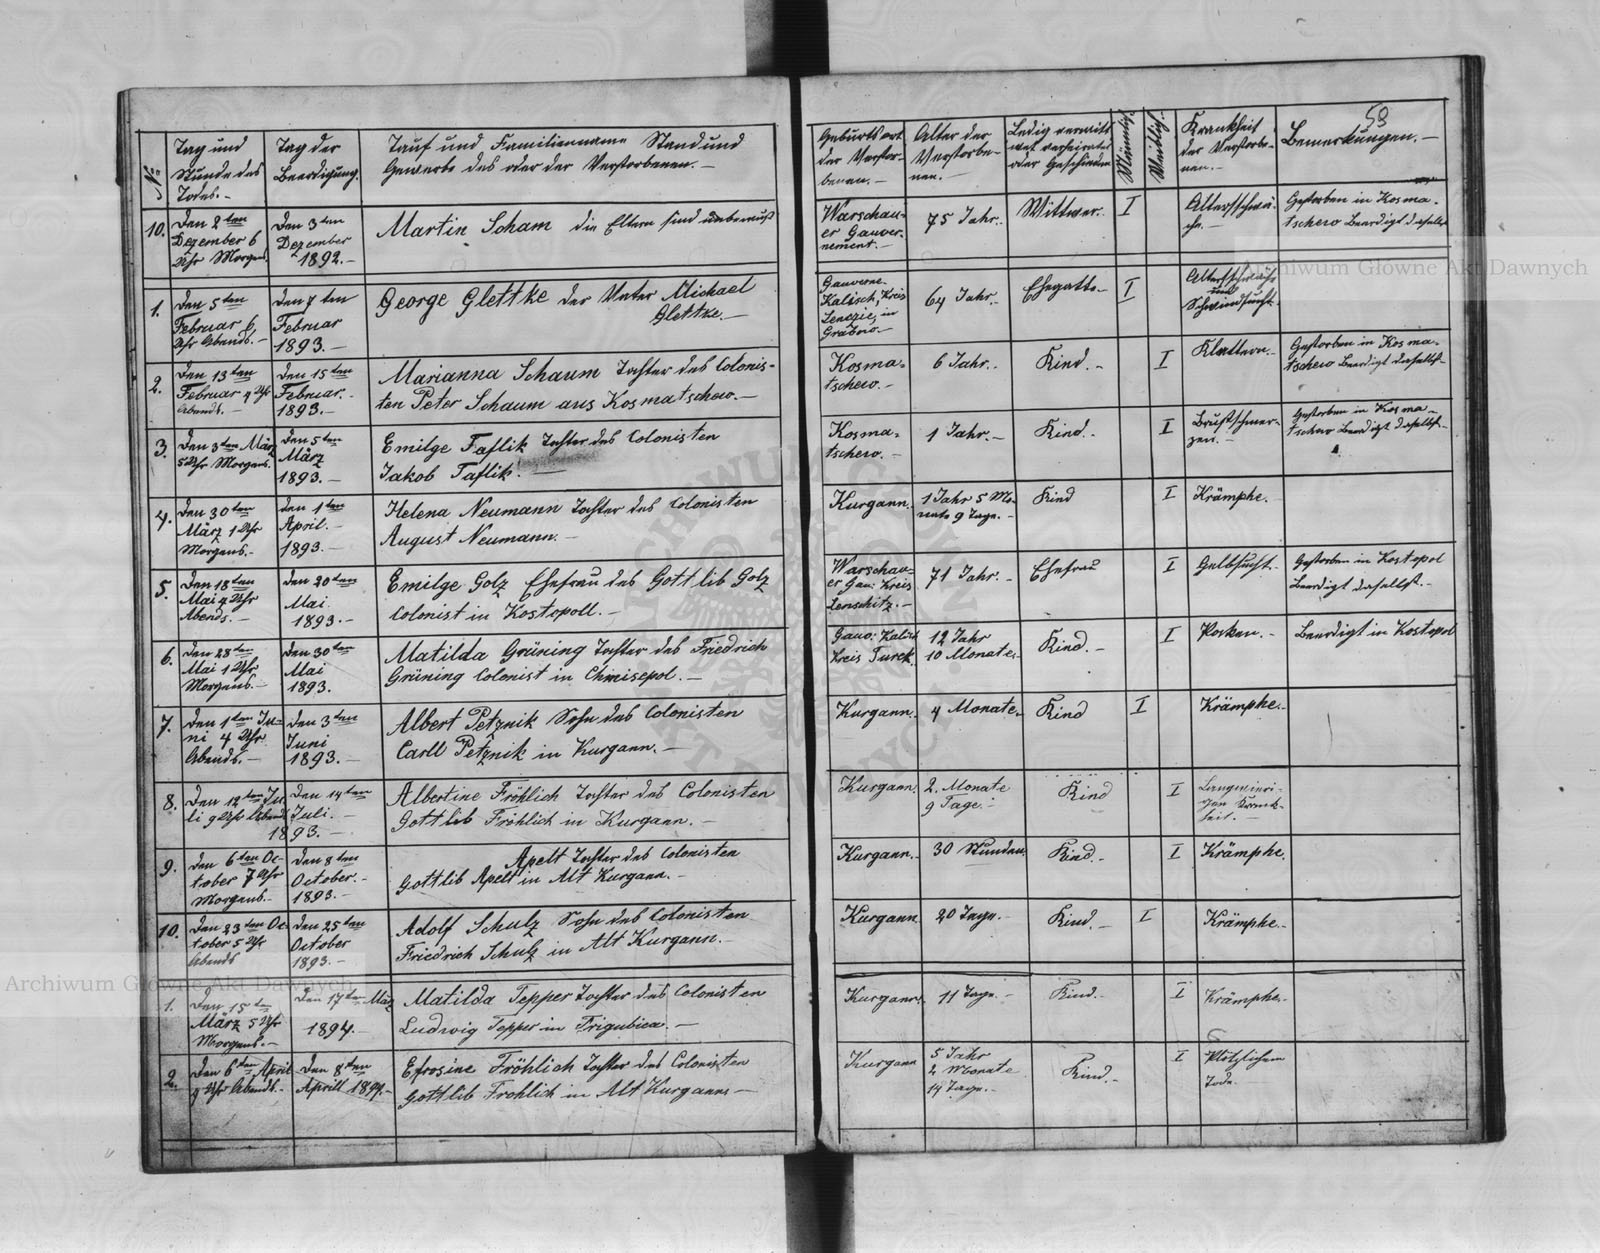 No
Tag und
Stunde des
Todes.-
Tag der
Beerdigung.
Tauf und Familienname Stand und
Gewerbe des oder der Verstorbenen.-
Geburtsort
der Verstor-
benen.-
Alter der
Verstorbe-
nen.-
Ledig verwitt
wet verheiratet
oder Geschieden
Männlich.
Weiblich.
Krankheit
der Verstorbe-
nen.-
Bemerkungen.-
59
10.
Den 2ten
Dezember 6
Uhr Morgens
Den 3ten
Dezember
1892.-
Martin Scham die Eltern sind unbewußt
Warschau-
er Gauver-
nement.-
75 Jahr.
Wittwer.
I
Altersschwä-
che.-
Gestorben in Kosma-
tschewo Beerdigt daselbst
1.
Den 5ten
Februar 6
Uhr Abends.-
Den 7ten
Februar
1893.-
George Glettke der Vater Michael
Glettke.-
Gauverne-
Kalisch, Kreis
Lenczic, in
Grabno.-
64 Jahr.-
Ehegatte-
I
Altersschwäche
und
Schwindsucht.
2.
Den 13ten
Februar 4 Uhr
Abends.-
Den 15ten
Februar.-
1893.-
Marianna Schaum Tochter des Colonis-
ten Peter Schaum aus Kosmatschew.-
Kosma-
tschew.-
6 Jahr.
Kind.-
I
Klattern.-
Gestorben in Kosma-
tschew Beerdigt daselbst-
3.
Den 3ten März
5 Uhr Morgens.
Den 5ten
März
1893.-
Emilge Taflik Tochter des Colonisten
Jakob Taflik.-
Kosma-
tschew.-
1 Jahr.-
Kind.
I
Brustschmer-
zen.-
Gestorben in Kosma-
tschew Beerdigt daselbst-
4.
Den 30ten
März 1 Uhr
Morgens.-
Den 1ten
April.-
1893.-
Helena Neumann Tochter des Colonisten
August Neumann.-
Kurgann.
1 Jahr 5 Mo-
nate 9 Tage.-
Kind
I
Krämphe.
5.
Den 18ten
Mai 4 Uhr
Abends.-
Den 20ten
Mai
1893.-
Emilge Golz Ehefrau des Gottlib Golz
Colonist in Kostopoll.-
Warschau-
er Gau: Kreis
Lenschitz.-
71 Jahr.-
Ehefrau
I
Gelbsucht.-
Gestorben in Kostopol
Beerdigt daselbst.-
6.
Den 28ten
Mai 1 Uhr
Morgens.-
Den 30ten
Mai
1893.
Matilda Grüning Tochter des Friedrich
Grüning Colonist in Chmisepol.-
Gauv: Kalisch
Kreis Turek.
12 Jahr
10 Monate.
Kind.-
I
Pocken.-
Beerdigt in Kostopol
7.
Den 1ten Ju-
ni 4 Uhr
Abends.-
Den 3ten
Juni
1893.-
Albert Petznik Sohn des Colonisten
Carll Petznik in Kurgann.-
Kurgann.
4 Monate.
Kind
I
Krämphe.-
8.
Den 12ten Ju-
li 9 Uhr Abends
1893.-
Den 14ten
Juli.-
Albertine Fröhlich Tochter des Colonisten
Gottlib Fröhlich in Kurgann.-
Kurgann.
2. Monate
9 Tage.
Kind
I
Langwieri-
gen Krank-
heit.-
9.
Den 6ten Oc-
tober 7 Uhr
Morgens.-
Den 8ten
October.-
1893.-
Apelt Tochter des Colonisten
Gottlib Apelt in Alt Kurgann.-
Kurgann.-
30 Stunden.
Kind.-
I
Krämphe.
10.
Den 23ten Oc-
tober 5 Uhr
Abends
Den 25ten
October
1893.-
Adolf Schulz Sohn des Colonisten
Friedrich Schulz in Alt Kurgann.-
Kurgann
20 Tage.-
Kind.-
I
Krämphe.-
1.
Den 15ten
März 5 Uhr
Morgens.-
Den 17ten März
1894.-
Matilda Tepper Tochter des Colonisten
Ludwig Tepper in Trigubica.-
Kurgann.
11 Tage.-
Kind.-
I
Krämphe.
2.
Den 6ten April
9 Uhr Abends.-
Den 8ten
Aprill 1894.-
Efrosine Fröhlich Tochter des Colonisten
Gottlib Fröhlich in Alt Kurgann-
Kurgann
5 Jahr
2 Monate
14 Tage.-
Kind.-
I
Plötzlichem
Tode.
Archiwum Główne Akt Dawnych
Archiwum Główne Akt Dawnych